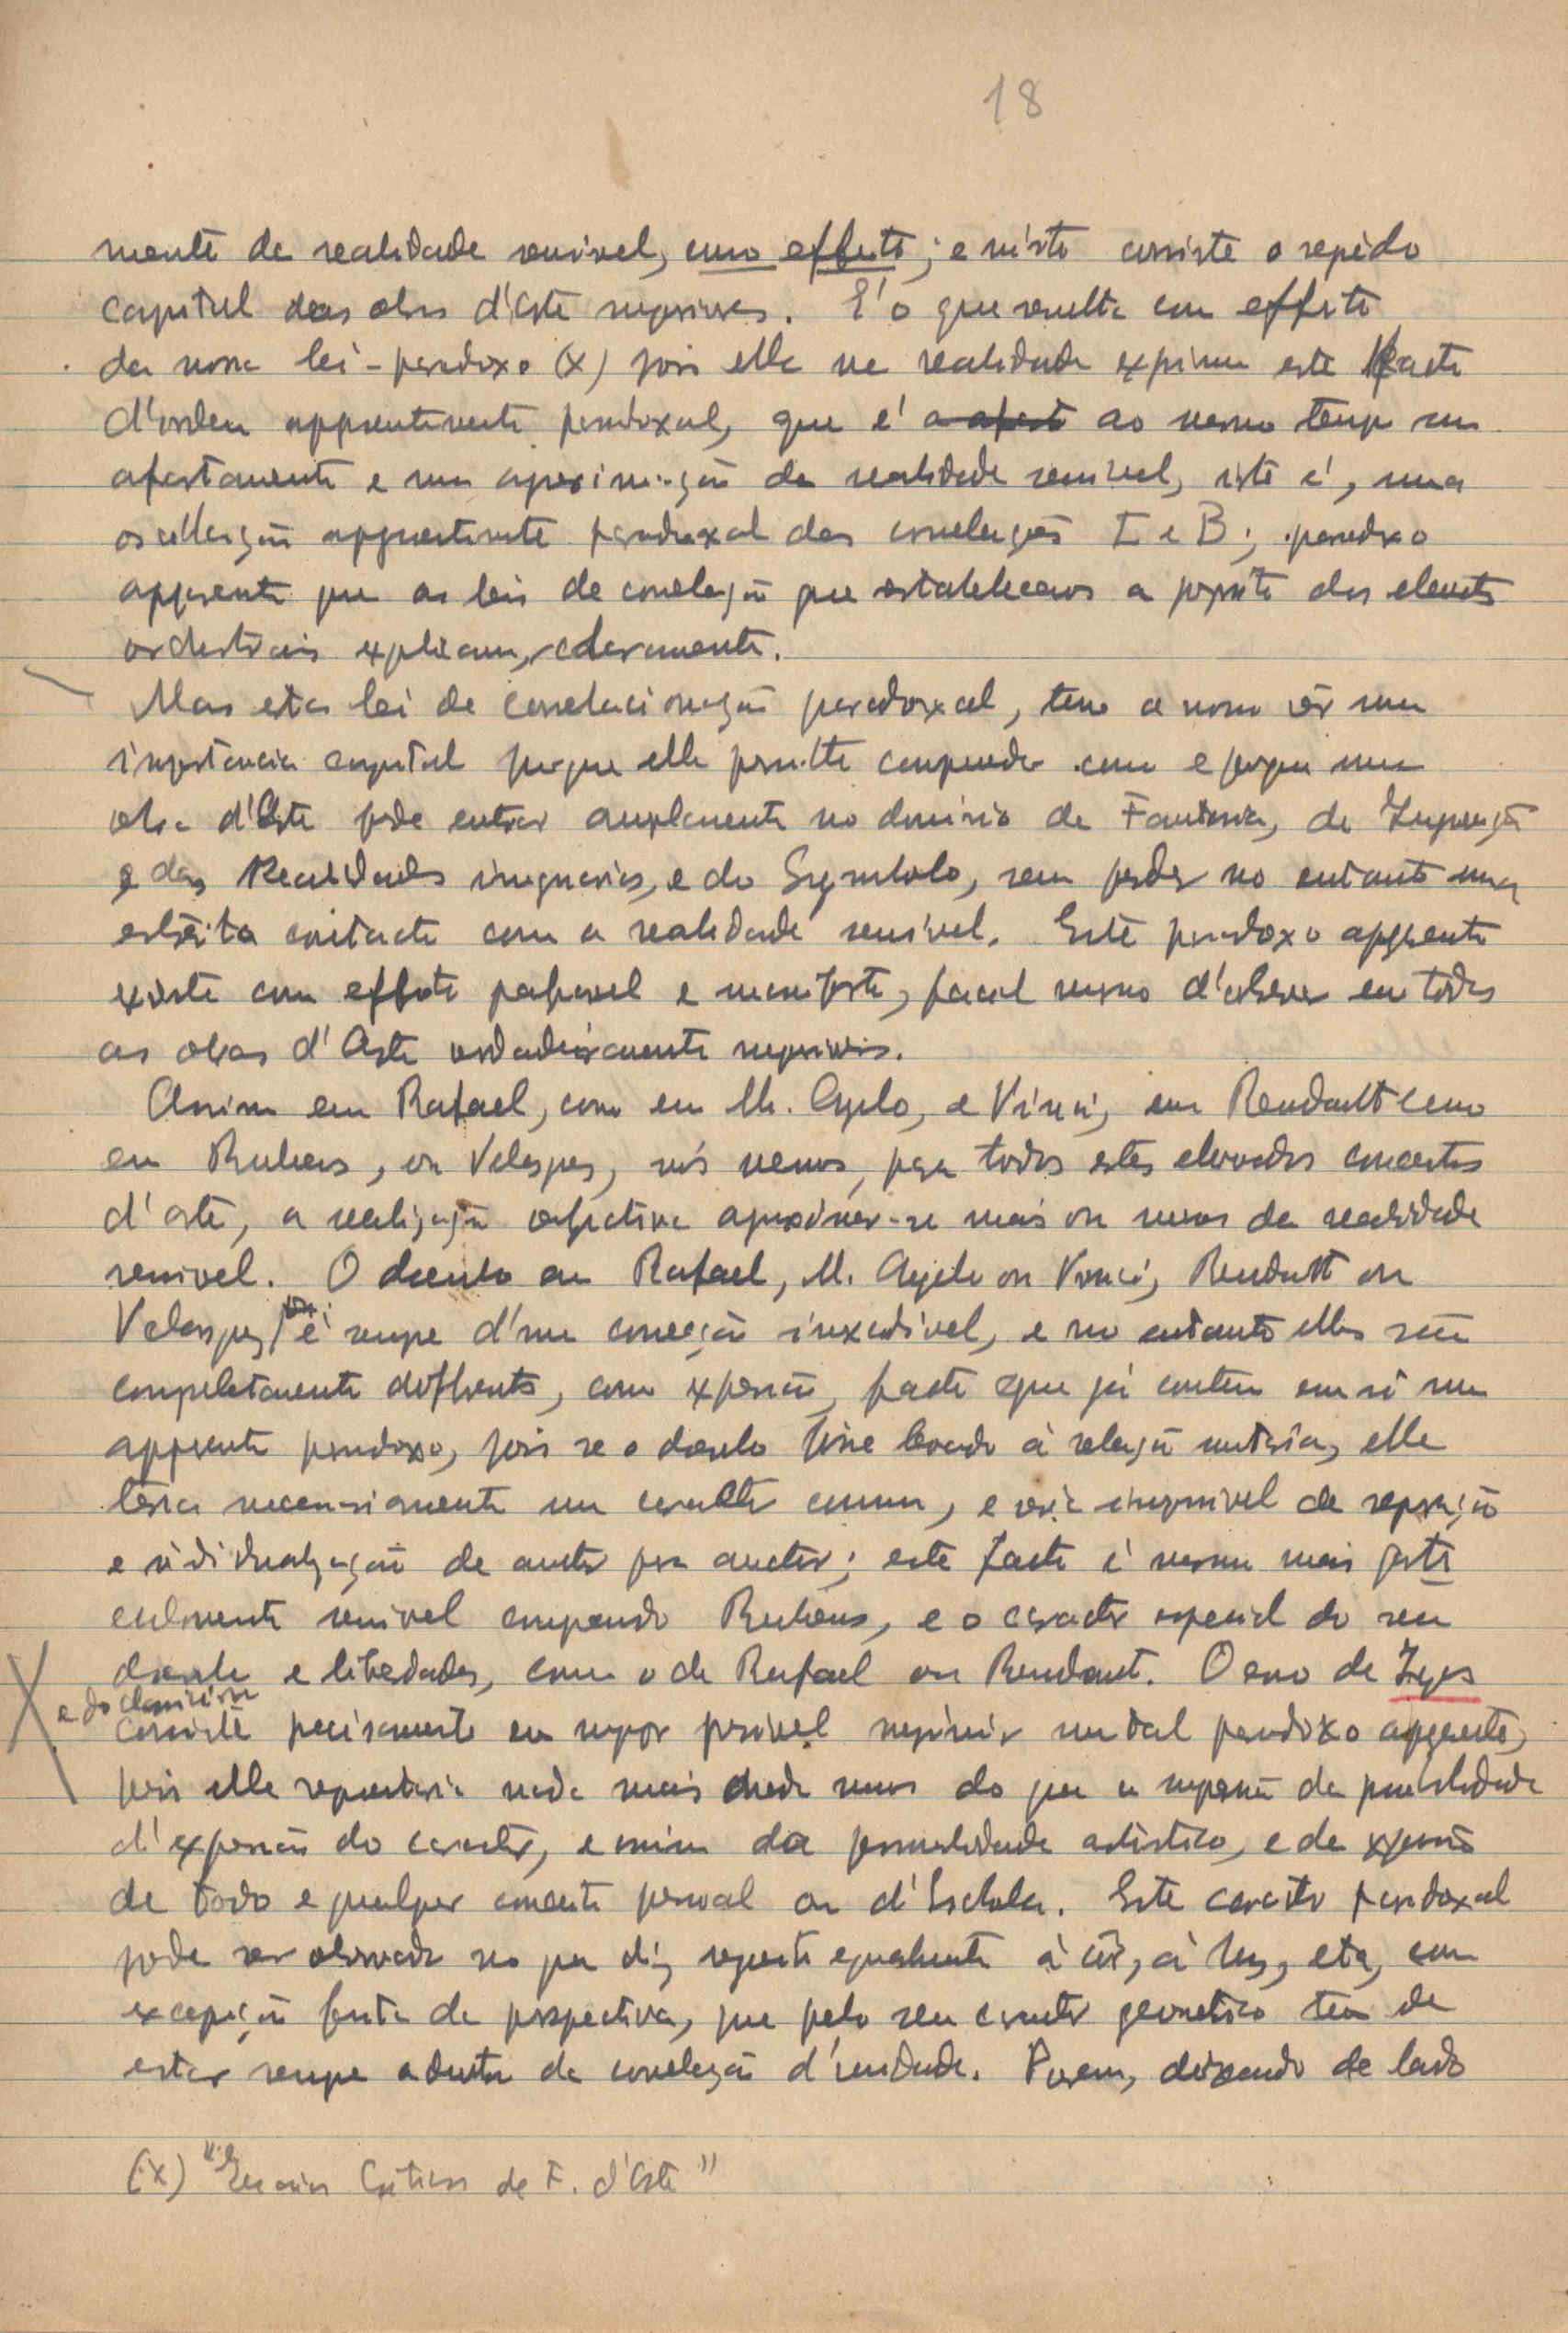 18
mente da realidade sensivel, como effeito; e n'isto consiste o segrêdo
capital das obras d'Arte superiores. E' o que resulta com effeito
da nossa lei-paradoxo (x) pois ella na realidade exprime este facto
d'ordem apparentemente paradoxal, que é ao mesmo tempo um
afastamento e uma aproximação da realidade sensivel, isto é, uma
oscillação apparentemente paradoxal das correlações I e B; paradoxo
apparente que as leis de correlação que estabelecemos a proposito dos elementos
orchestrais explicam, claramente.
Mas esta lei de correlacionação paradoxal, tem a nosso vêr uma
importancia capital porque ella permitte comprender como e porque uma
obra d'Arte pode entrar amplamente no dominio da Fantasia, da
e das Realidades imaginarias, e do Symbolo, sem perder no entanto um
estreito contacto com a realidade sensivel. Este paradoxo apparente
existe com effeito palpavel e manifesto, facil mesmo d'observar em todas
as obras d'Arte verdadeiramente superiores.
Assim em Rafael, como em M. Angelo, e Vinci, em Rembrandt como
em Rubens, ou Velasquez, nós vemos, para todos estes elevados conceitos
d'arte, a realização respectiva aproximar-se mais ou menos da realidade
sensivel. O desenho em Rafael, M. Angelo ou Vinci, Rembrandt ou
Velasquez, é sempre d'uma correcção inexcedivel, e no entanto elles são
completamente differentes, como expressão, facto que já contem em si um
apparente paradoxo, pois se o desenho fosse levado á relação unitaria, elle
teria necessariamente um caracter commum, e seria impossivel de separação
e individualização de auctor para auctor; este facto é mesmo mais parti
cularmente sensivel comparando Rubens, e o caracter especial do seu
desenho e liberdades, com o de Rafael ou Rembrandt. O erro de Ingres
e do classicismo
consiste precisamente em suppor possivel suprimir um tal paradoxo apparente,
pois elle representaria nada mais nada menos do que a supressão da possibilidade
d'expressão do caracter, e assim da personalidade artistica, e da expressão
de todo e qualquer conceito pessoal ou d'Eschola. Este caracter paradoxal
pode ser observado no que diz respeito egualmente á côr, á luz, etc, com
excepção feita da perspectiva, que pelo seu caracter geometrico tem de
estar sempre adentro da correlação d'unidade. Porem, deixando de lado
(x) "Ensaios Criticos de F. d'Arte"